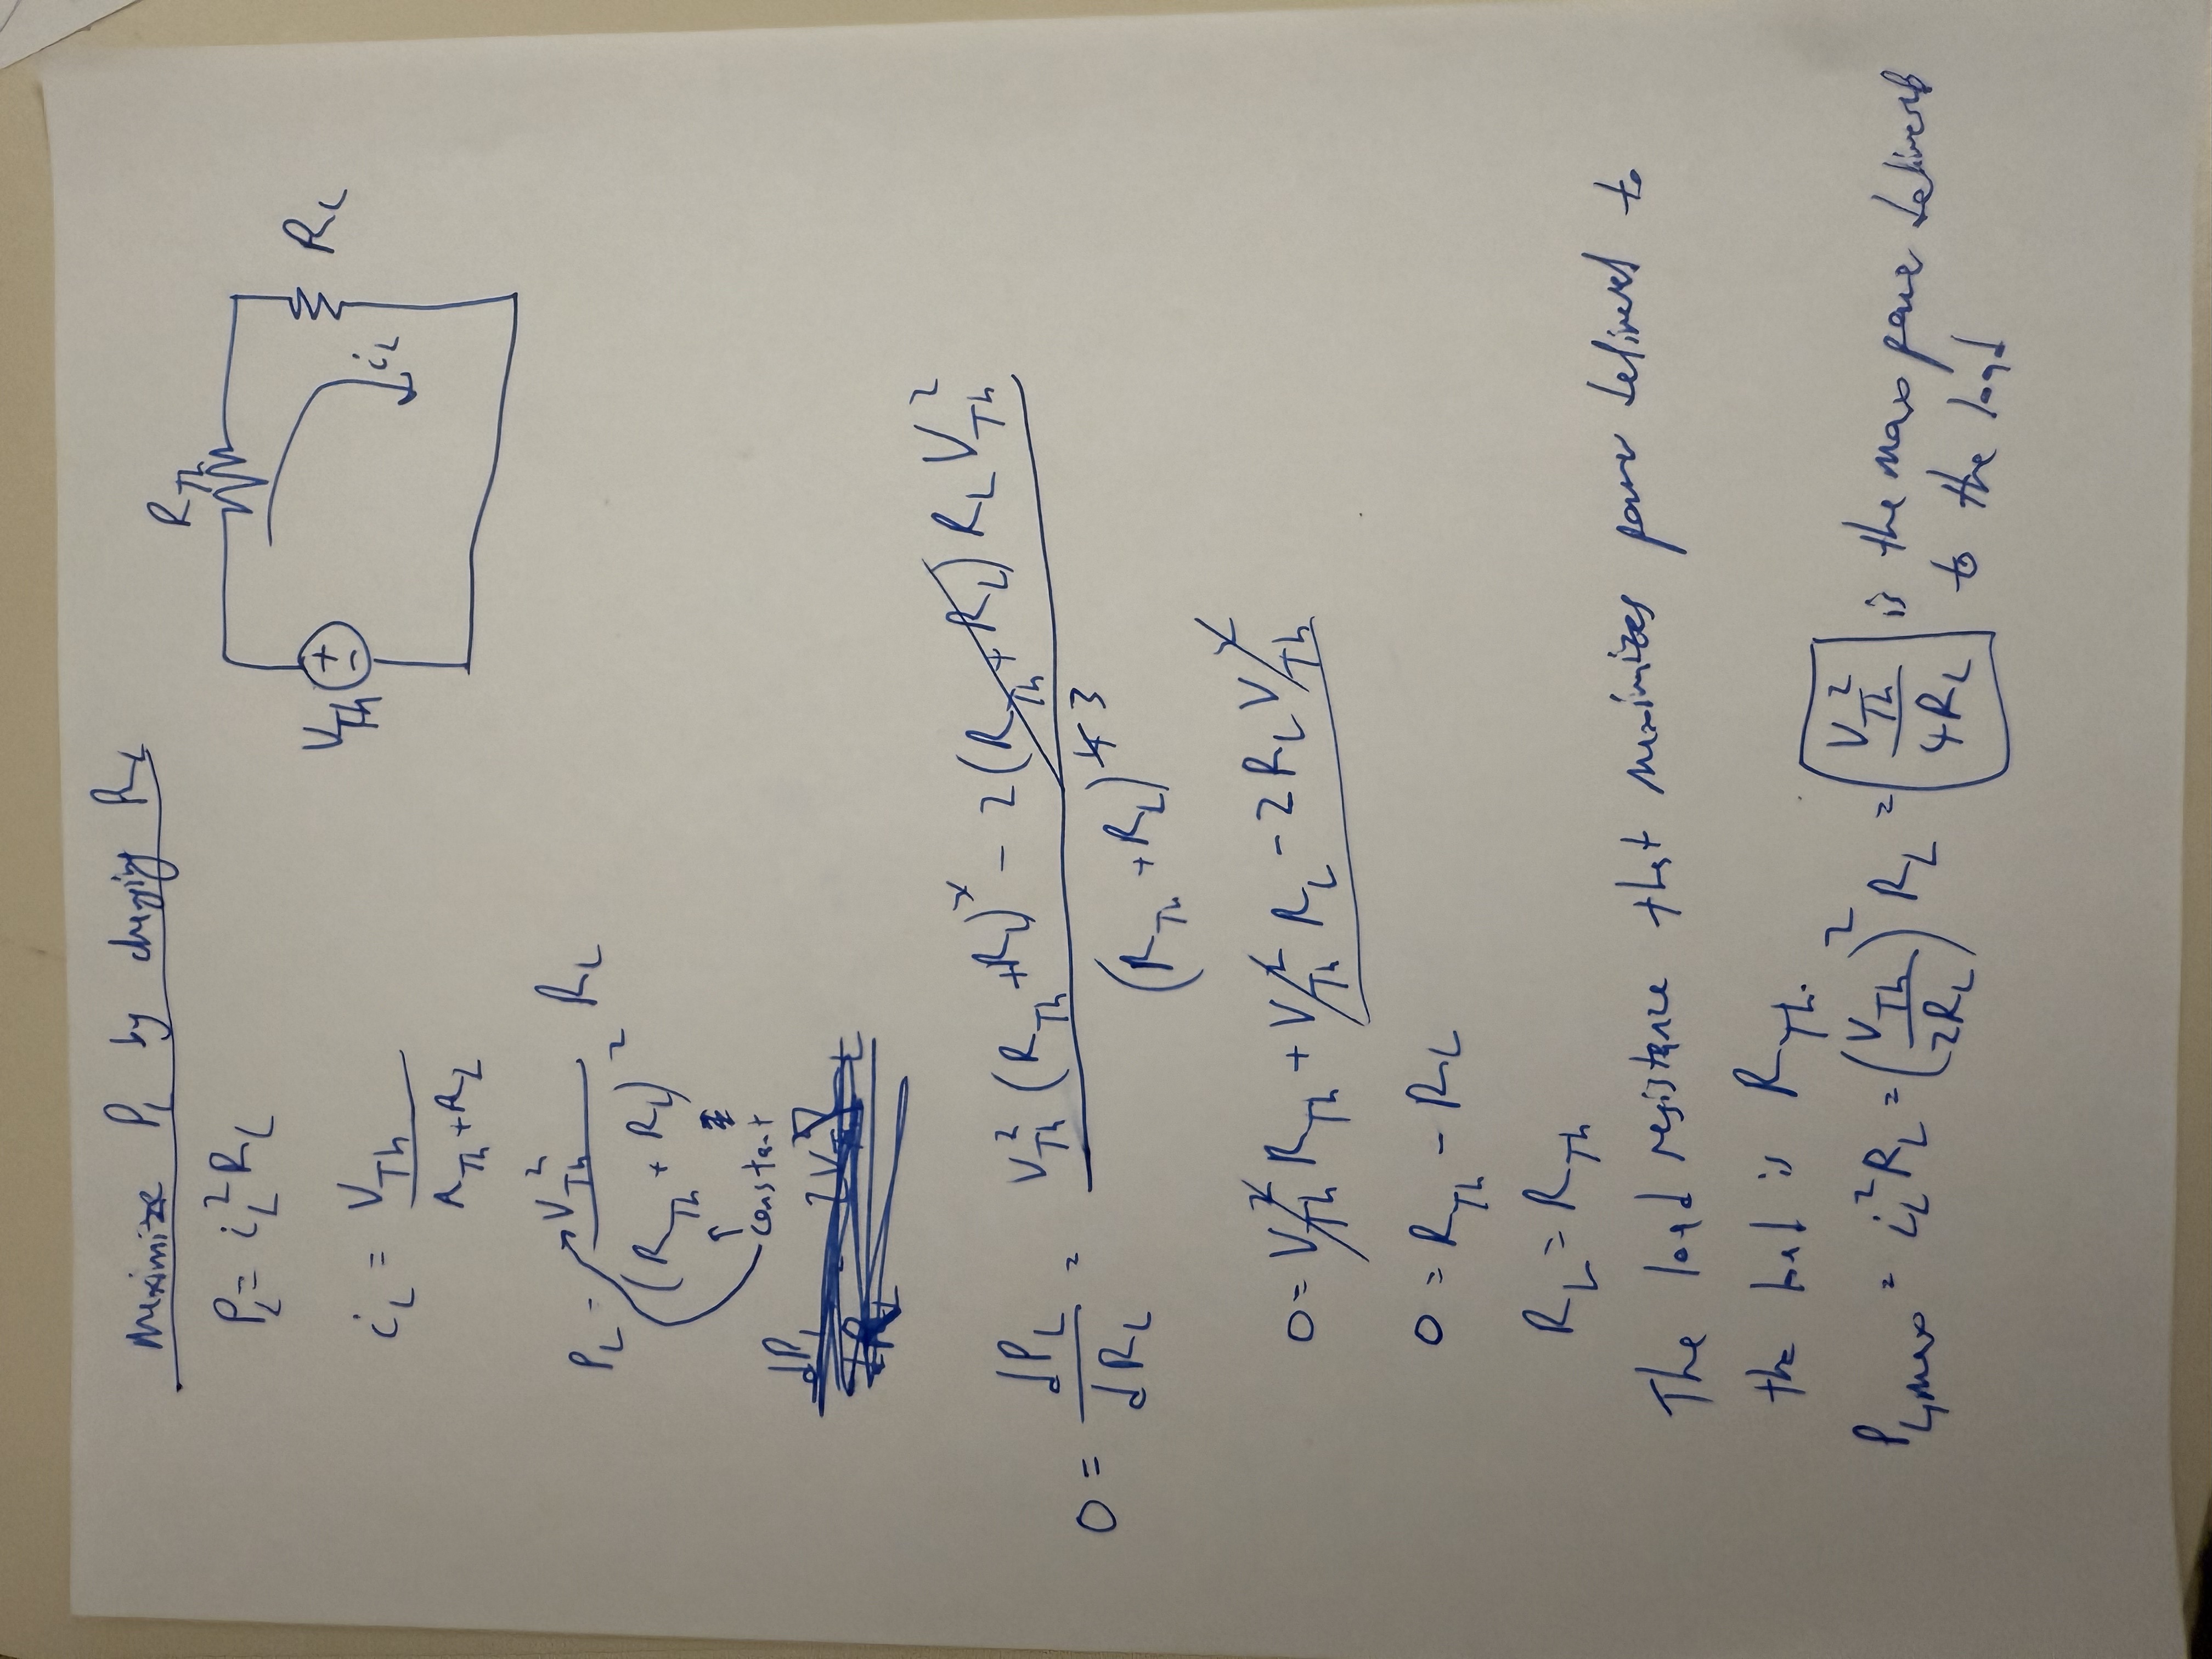 Maximize P_L by changing R_L
R_Th
V_Th + -
i_L
R_L
P_L = i_L^2 R_L
i_L = V_Th / (R_Th + R_L)
P_L = V_Th^2 / (R_Th + R_L)^2 R_L
constant
0 = dP_L/dR_L = (V_Th^2 (R_Th + R_L)^2 - 2(R_Th + R_L) R_L V_Th^2) / (R_Th + R_L)^4 3
0 = V_Th^2 R_Th + V_Th^2 R_L - 2 R_L V_Th^2
0 = R_Th - R_L
R_L = R_Th
The load resistance that maximizes power delivered to
the load is R_Th.
P_L,max = i_L^2 R_L = (V_Th / 2R_L)^2 R_L = V_Th^2 / 4R_L is the max power delivered
to the load